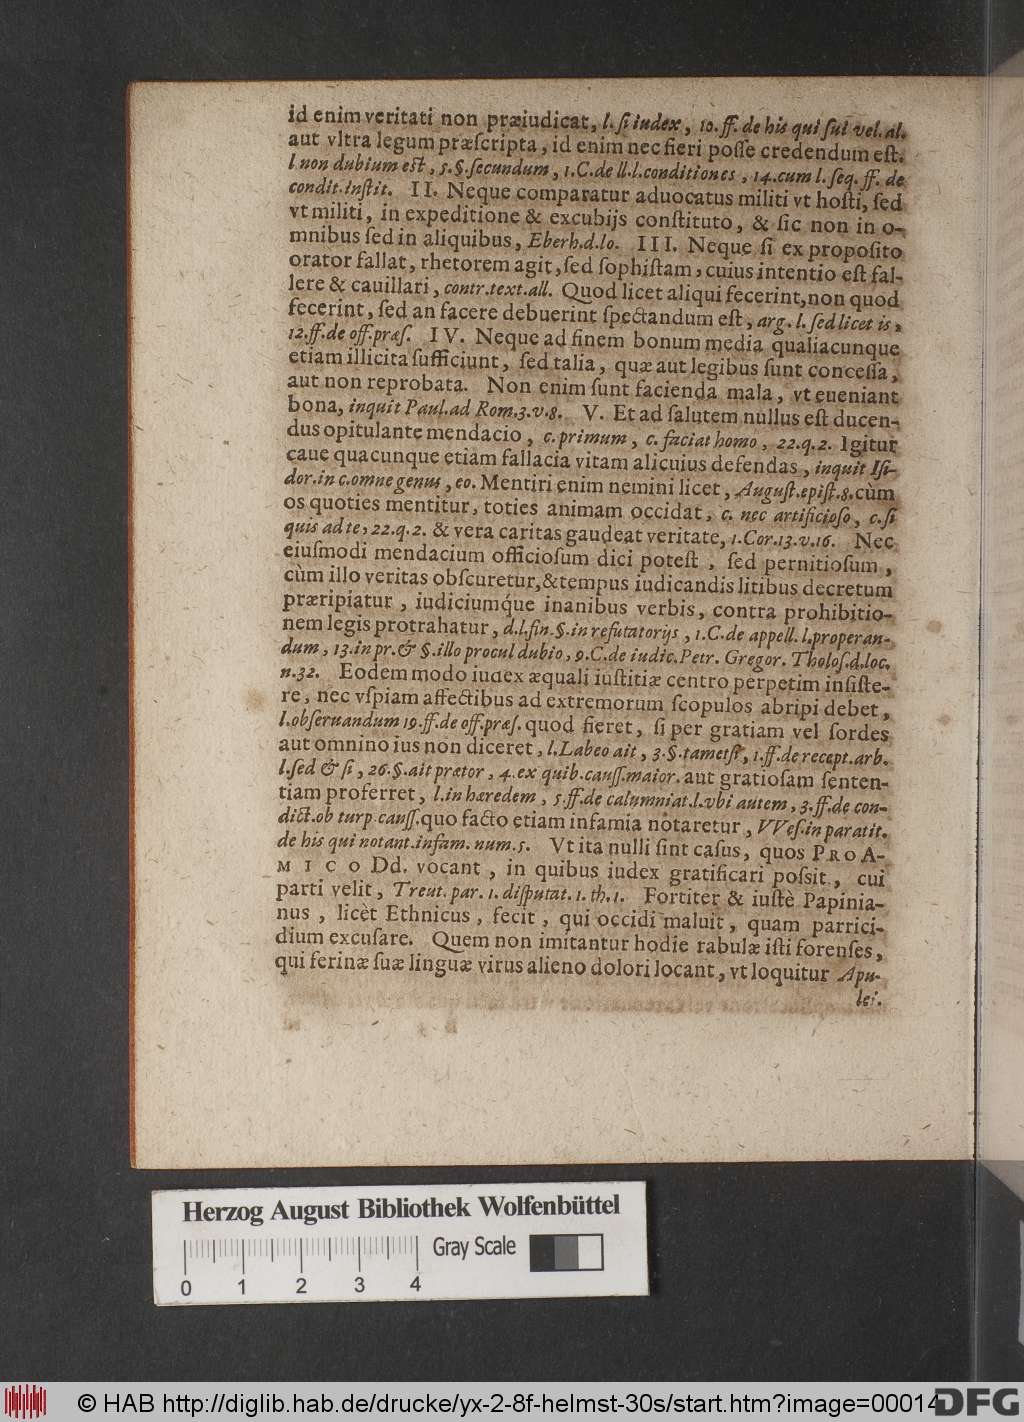 id enim veritati non præiudicat, l. ſi iudex, 10. ff. de his qui ſui vel. al.
aut vltra legum præſcripta, id enim nec fieri poſſe credendum eſt.
l non dubium eſt, 5. §. ſecundum, 1. C. de ll. l. conditiones, 14. cum l. ſeq. ff. de
condit. inſtit. II. Neque comparatur aduocatus militi vt hoſti, ſed
vt militi, in expeditione & excubijs conſtituto, & ſic non in o-
mnibus ſed in aliquibus, Eberh. d. lo. III. Neque ſi ex propoſito
orator fallat, rhetorem agit, ſed ſophiſtam, cuius intentio eſt fal-
lere & cauillari, contr. text. all. Quod licet aliqui fecerint, non quod
fecerint, ſed an facere debuerint ſpectandum eſt, arg. l. ſed licet is,
12. ff. de off. præſ. IV. Neque ad finem bonum media qualiacunque
etiam illicita ſufficiunt, ſed talia, quæ aut legibus ſunt conceſſa,
aut non reprobata. Non enim ſunt facienda mala, vt eueniant
bona, inquit Paul. ad Rom. 3. v. 8. V. Et ad ſalutem nullus eſt ducen-
dus opitulante mendacio, c. primum, c. faciat homo, 22. q. 2. Igitur
caue quacunque etiam fallacia vitam alicuius defendas, inquit Iſi-
dor. in c. omne genus, eo. Mentiri enim nemini licet, Auguſt. epiſt. 8. cùm
os quoties mentitur, toties animam occidat, c. nec artificioſo, c. ſi
quis ad te, 22. q. 2. & vera caritas gaudeat veritate, 1. Cor. 13. v. 16. Nec
eiuſmodi mendacium officioſum dici poteſt, ſed pernitioſum,
cùm illo veritas obſcuretur, & tempus iudicandis litibus decretum
præripiatur, iudiciumq́ue inanibus verbis, contra prohibitio-
nem legis protrahatur, d. l. fin. §. in refutatorijs, 1. C. de appell. l. properan-
dum, 13. in pr. & §. illo procul dubio, 9. C. de iudic. Petr. Gregor. Tholoſ. d. loc.
n. 32. Eodem modo iudex æquali iuſtitiæ centro perpetim inſiſte-
re, nec vſpiam affectibus ad extremorum ſcopulos abripi debet,
l. obſeruandum 19. ff. de off. præſ. quod fieret, ſi per gratiam vel ſordes
aut omnino ius non diceret, l. Labeo ait, 3. §. tametſi, 1. ff. de recept. arb.
l. ſed & ſi, 26. §. ait prætor, 4. ex quib. cauſſ. maior. aut gratioſam ſenten-
tiam proferret, l. in hæredem, 5. ff. de calumniat. l. vbi autem, 3. ff. de con-
dict. ob turp. cauſſ. quo facto etiam infamia notaretur, VVeſ. in paratit.
de his qui notant. infam. num. 5. Vt ita nulli ſint caſus, quos PRO A-
MICO Dd. vocant, in quibus iudex gratificari poſsit, cui
parti velit, Treut. par. 1. diſputat. 1. th. 1. Fortiter & iuſtè Papinia-
nus, licèt Ethnicus, fecit, qui occidi maluit, quam parrici-
dium excuſare. Quem non imitantur hodie rabulæ iſti forenſes,
qui ferinæ ſuæ linguæ virus alieno dolori locant, vt loquitur Apu-
lei.
Herzog August Bibliothek Wolfenbüttel
Gray Scale
0 1 2 3 4
© HAB http://diglib.hab.de/drucke/yx-2-8f-helmst-30s/start.htm?image=00014
DFG